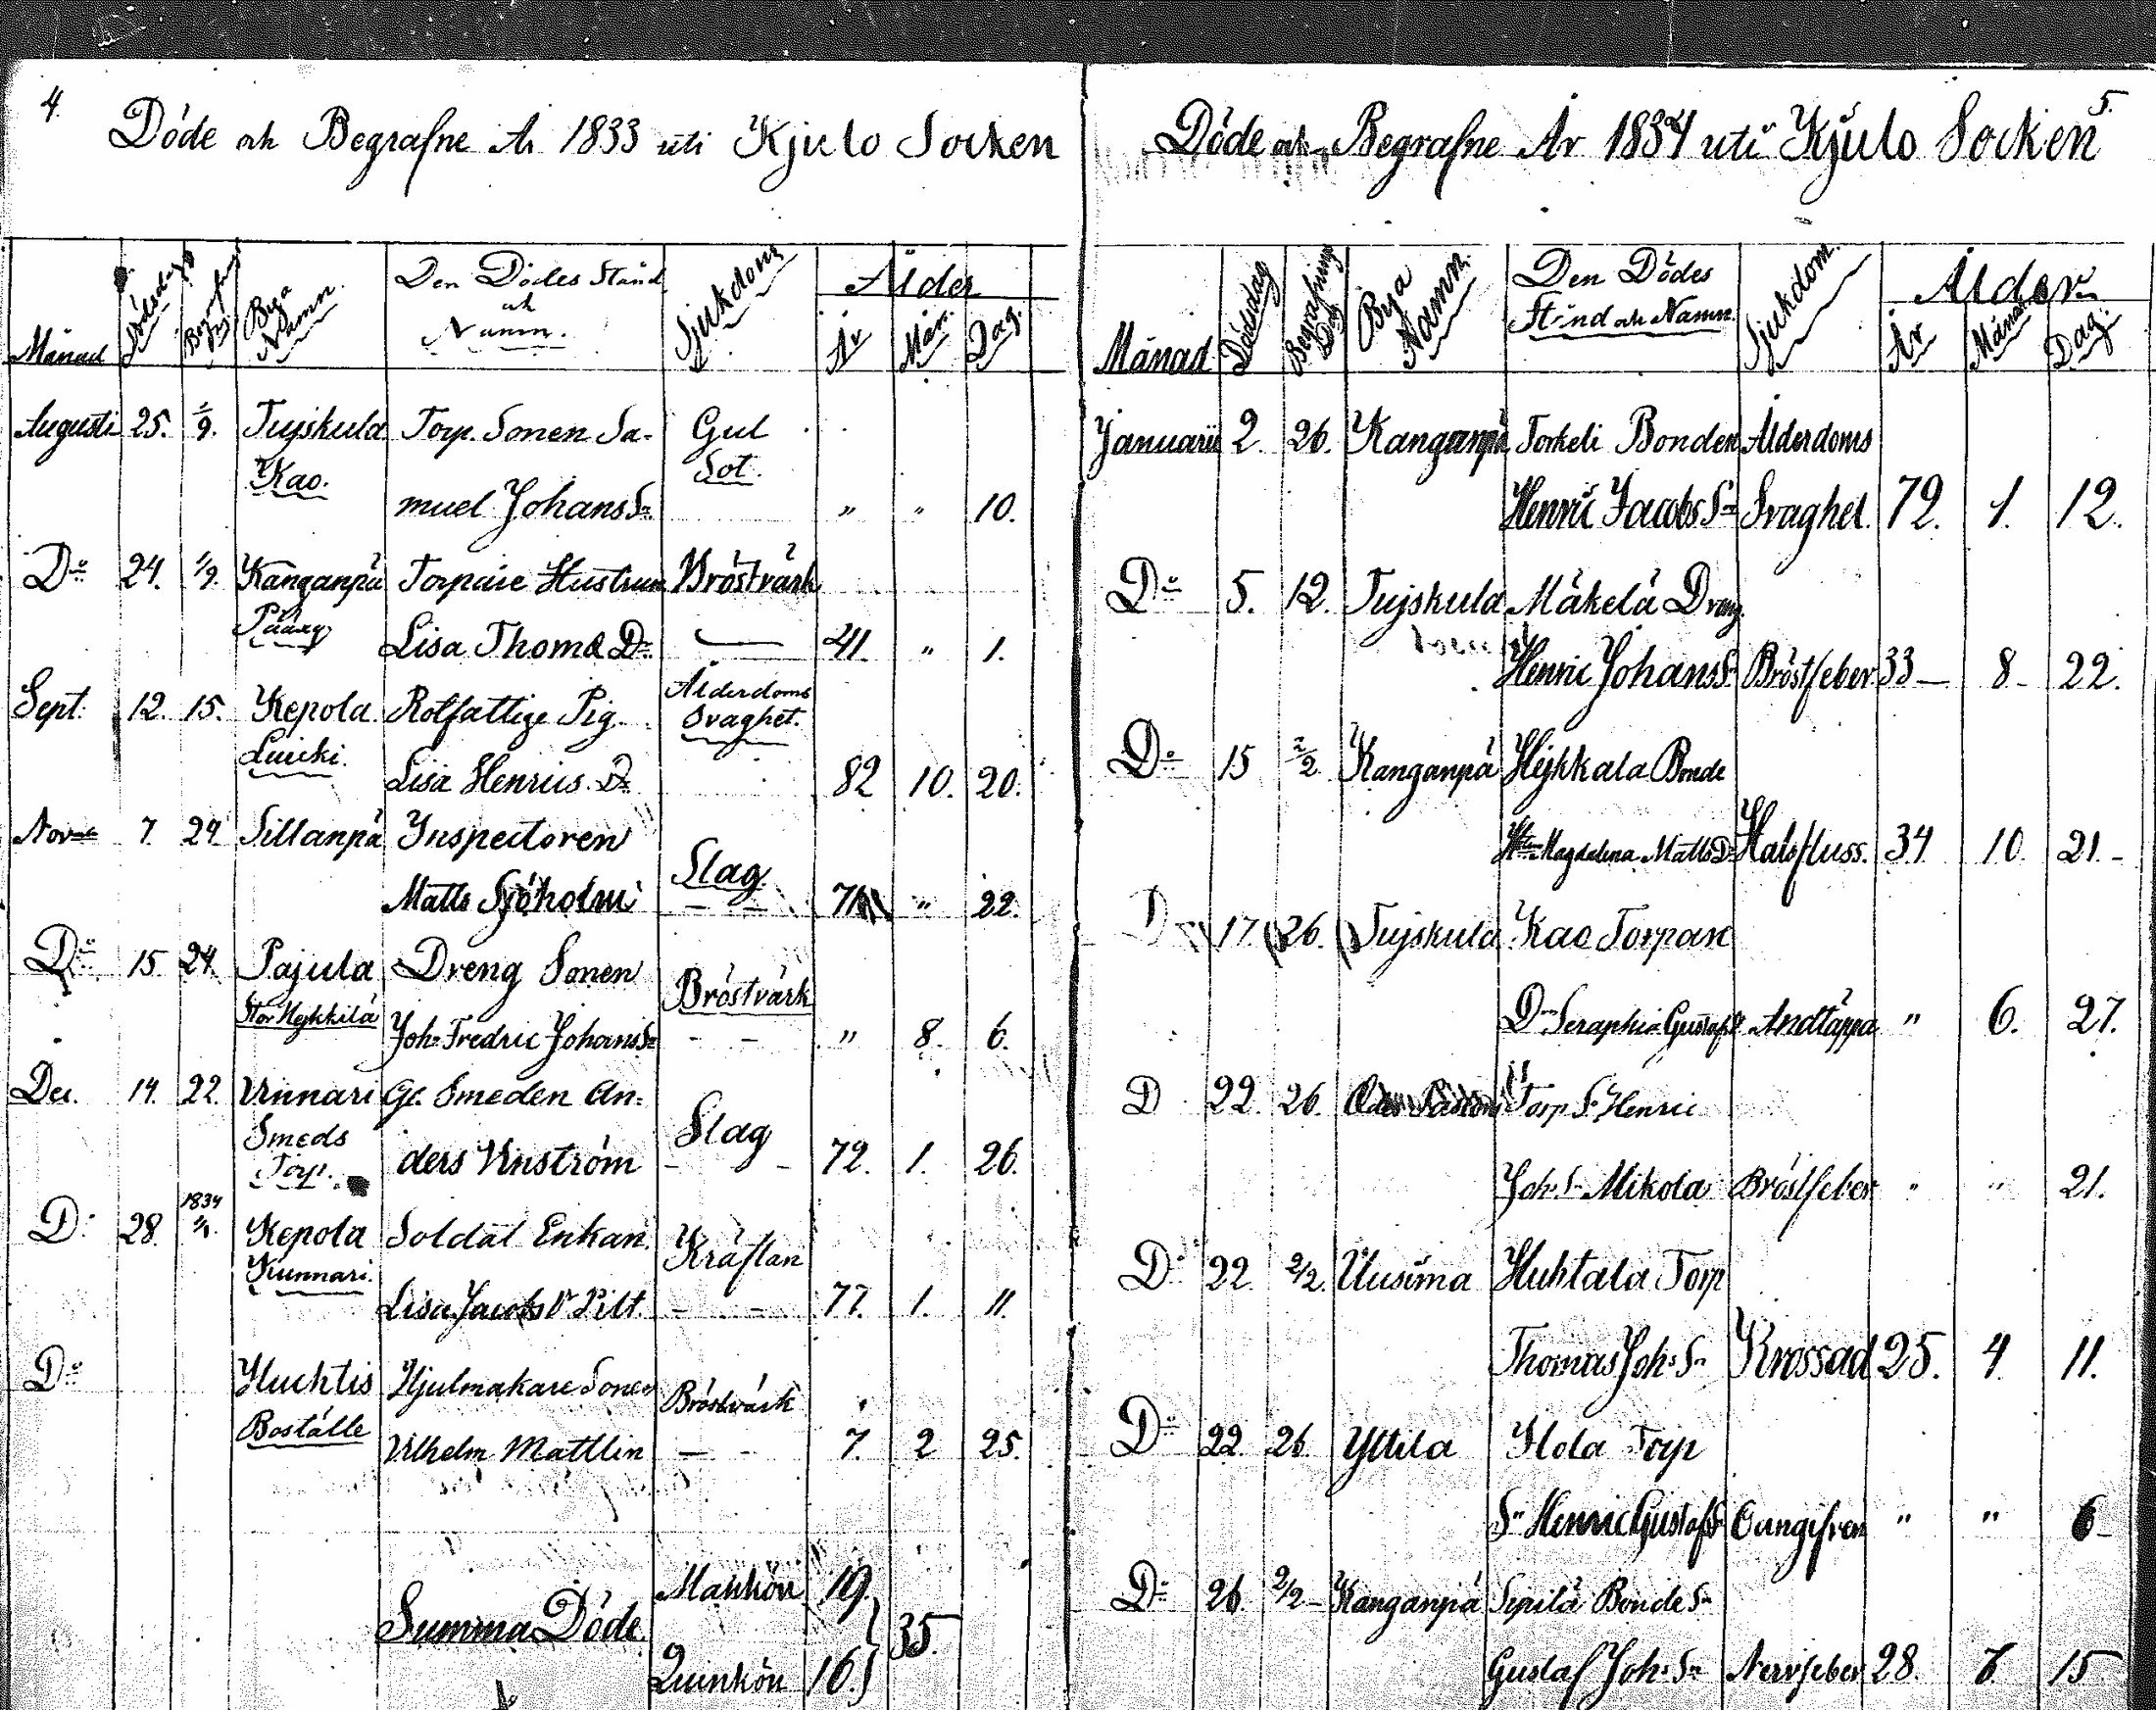 4.
Döde och Begrafne År 1833 uti Kjulo Socken
Månad Dödsdag Begrafnings Dag Bya Namn. Den Dödes Stånd och Namn. Sjukdom Ålder
År Mån. Dag.
Augusti 25. 1/9. Tujskula Torp. Sonen Sa- Gul
Kao. Sot.
muel Johans Sn " " 10.
Do 24. 1/9. Kanganpä Torpare Hustrun Bröstvärk
Lisa Thomæ Dr. — 41. " 1.
Sept. 12. 15. Kepola Rotfattige Pig. Ålderdoms
Svaghet.
Luicki. Lisa Henrics Dr 82 10. 20.
Nov 7. 24 Sillanpä Inspectoren
Matts Sjöholm Slag. " 22.
Do 15. 24. Pajula Dreng Sonen
Stor Hejkkilä Joh: Fredric Johans Sn Bröstvärk - - " 8. 6.
Dec. 14. 22. Vinnari Gl. Smeden An-
Smeds
Torp. ders Vinström Slag 72. 1. 26.
1834
Do 28. Kepola Soldat Enkan Kräftan
Kunnari.
Lisa Jacobs Dr Pilt - - 77. 1. 11.
Do Huchtis Hjulmakare Sonen Bröstvärk
Boställe Vilhelm Mattlin — - 7. 2 25.
Mankön 19.
Summa Döde. 35.
Quinkön 16.
5.
Döde och Begrafne År 1834 uti Kjulo Socken
Månad Dödsdag Begrafnings Dag Bya Namn. Den Dödes Stånd och Namn. Sjukdom. Ålder
År Månad Dag.
Januarii 2. 26. Kanganpä Torkeli Bonden Ålderdoms
Henric Jacobs Sn Svaghet. 72. 1. 12.
Do 5. 12. Tujskula Mäkelä Dreng
Henric Johans S. Bröstfeber 33 — 8 - 22.
Do 15 2/2 Kanganpä Hejkkala Bonde
Magdalena Matts Dr Halsfluss. 34. 10. 21 -
D 17. 26. Tujskula Kao Torpan
Dr Seraphia Gustafs Andtäppa " 6. 27.
D 22. 26. Torp Sn Henric
Joh: Sn Mikola Bröstfeber " " 21.
Do 22. 2/2. Uusima Huhtala Torp
Thomas Joh: Sn Krossad 25. 4 11.
Do 22. 26 Yttila Ylola Torp
Sn Henric Gustafs S " " 6 -
Do 26. 2/2 - Kanganpä Sepilä Bonde Sn
Gustaf Joh: Sn Nervfeber 28. 15